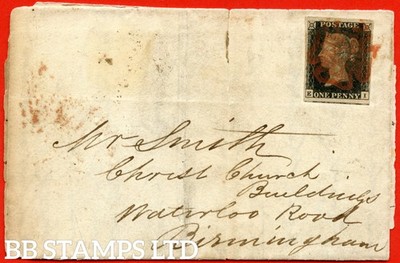 POSTAGE
E E
ONE PENNY
Mr Smith
Christ Church
Buildings
Waterloo Road
Birmingham
BB STAMPS LTD